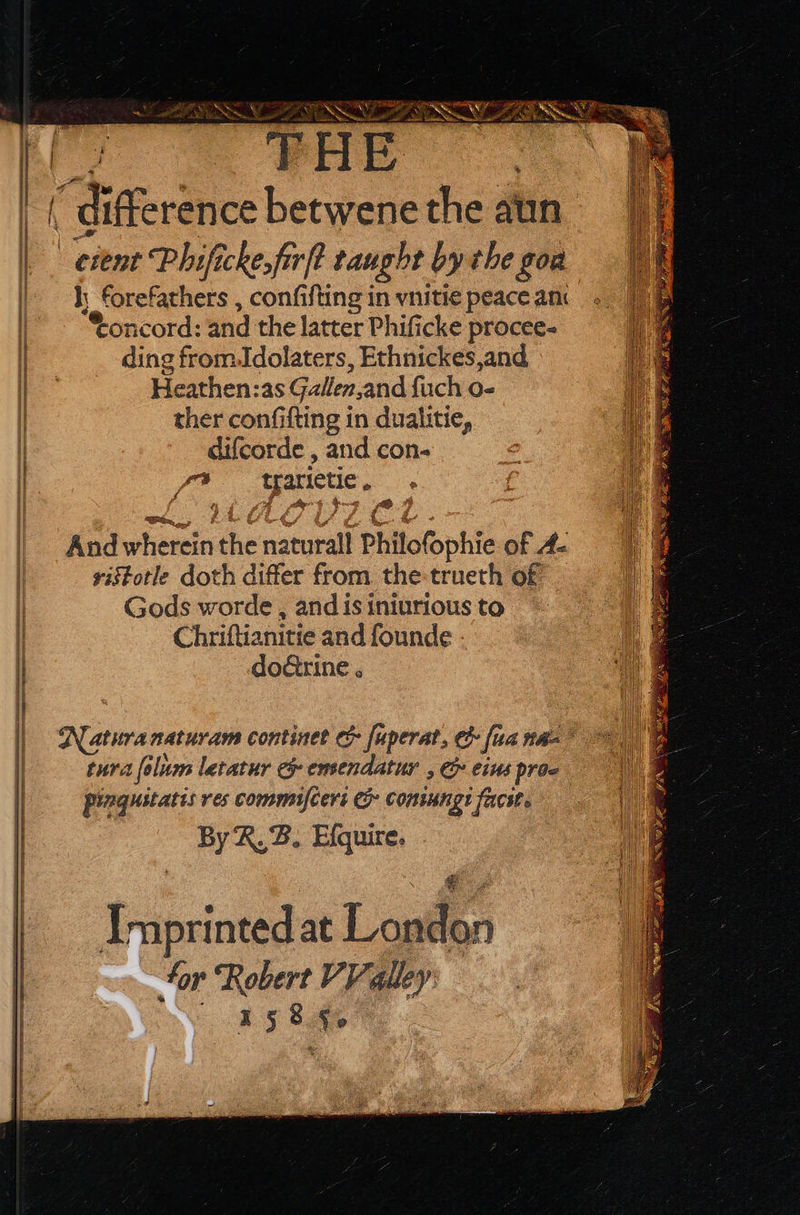 THE
difference betwene the aun
cient Phiſicke, firſt taught by the god
ly forefathers, conſiſting in vnitie peace and
concord: and the latter Phiſicke procee-
ding from Idolaters, Ethnickes, and
Heathen: as Gallen, and ſuch o-
ther conſiſting in dualitie,
diſcorde, and con-
trarietie.
And wherein the naturall Philoſophie of A-
riſtotle doth differ from the trueth of
Gods worde, and is iniurious to
Chriſtianitie and ſounde
doctrine.
Natura naturam continet & ſuperat, & ſua na-
tura ſolum letatur & emendatur, & eius pro-
pinquitatis res commiſceri & coniungi facit.
By R. B. Eſquire.
Imprinted at London
for Robert VValley
1585.